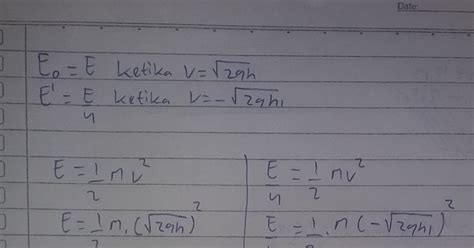 Date:
E₀ = E ketika v = √2gh
E' = E/4 ketika v = -√2gh₁
E = 1/2 m v²
E = 1/2 m. (√2gh)²
E/4 = 1/2 m v²
E/4 = 1/2 . m (-√2gh₁)²